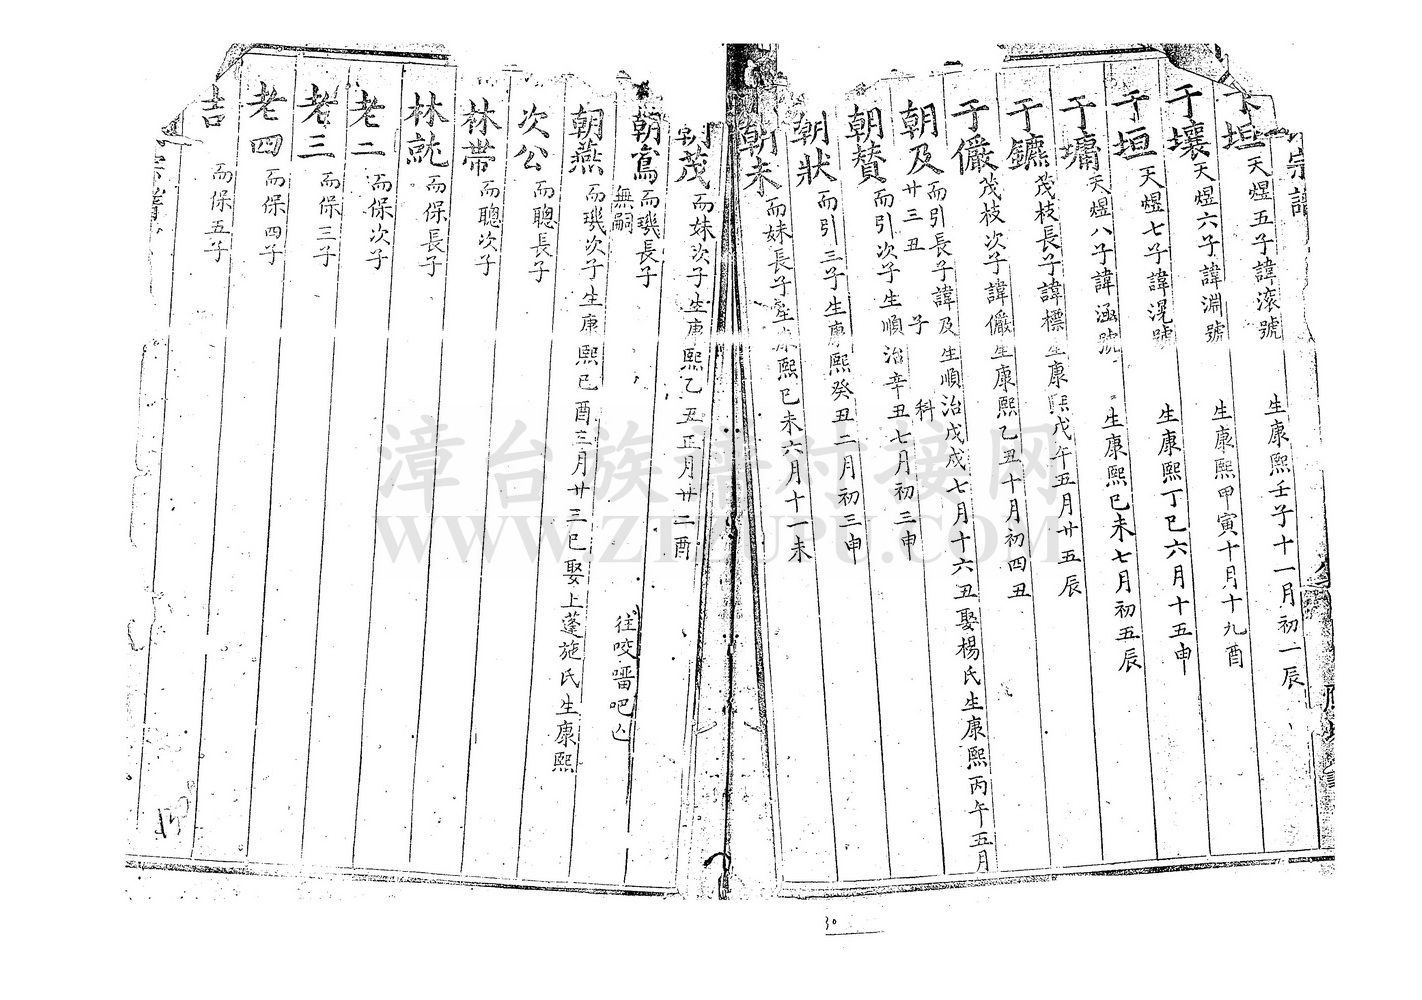 宗譜
于垣天煜五子諱滾號 生康熙壬子十一月初一辰
于壤天煜六子諱淵號 生康熙甲寅十月十九酉
于垣天煜七子諱滉號 生康熙丁巳六月十五申
于墉天煜八子諱涵號 生康熙已未七月初五辰
于鑣茂枝長子諱標生康熙戊午五月廿五辰
于儼茂枝次子諱儼生康熙乙丑十月初四丑
朝及而引長子諱及生順治戊戌七月十六丑娶楊氏生康熙丙午五月
廿三丑 子 科
朝贊而引次子生順治辛丑七月初三申
朝狀而引三子生康熙癸丑二月初三申
朝未而妹長子生康熙已未六月十一未
朝茂而妹次子生康熙乙丑正月廿二酉
朝鳶而璣長子
無嗣 往咬𠺕吧亾
朝燕而璣次子生康熙已酉三月廿三巳娶上蓬施氏生康熙
次公而聰長子
林帶而聰次子
林就而保長子
老二而保次子
老三而保三子
老四而保四子
吉而保五子
漳台族譜对接网
WWW.ZTZUPU.COM
30